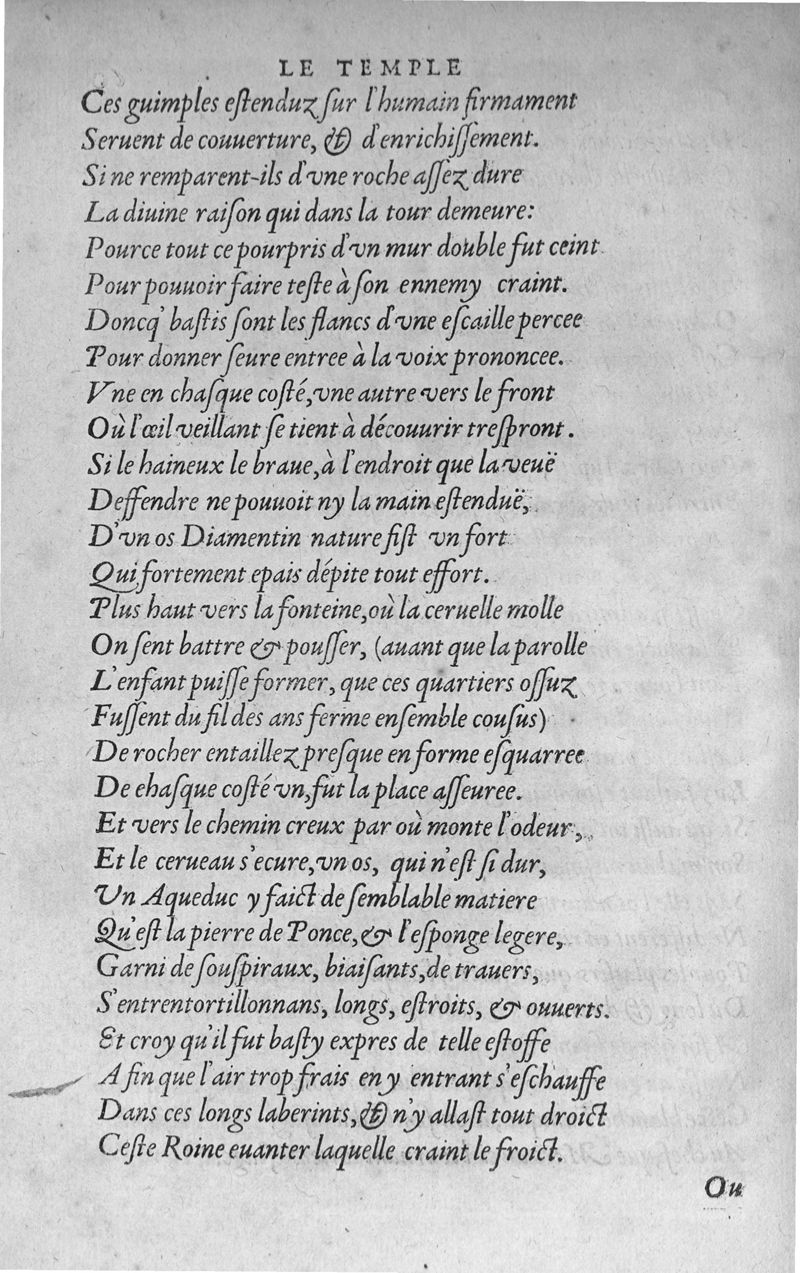 LE TEMPLE
Ces guimples eſtenduz ſur l'humain firmament
Seruent de couuerture, & d'enrichiſſement.
Si ne remparent-ils d'vne roche aſſez dure
La diuine raiſon qui dans la tour demeure:
Pource tout ce pourpris d'vn mur double fut ceint
Pour pouuoir faire teſte à ſon ennemy craint.
Doncq' baſtis ſont les flancs d'vne eſcaille percee
Pour donner ſeure entree à la voix prononcee.
Vne en chaſque coſté, vne autre vers le front
Où l'œil veillant ſe tient à découurir treſpront.
Si le haineux le braue, à l'endroit que la veuë
Deffendre ne pouuoit ny la main eſtenduë,
D'vn os Diamentin nature fiſt vn fort
Qui fortement epais dépite tout effort.
Plus haut vers la fonteine, où la ceruelle molle
On ſent battre & pouſſer, (auant que la parolle
L'enfant puiſſe former, que ces quartiers oſſuz
Fuſſent du fil des ans ferme enſemble couſus)
De rocher entaillez preſque en forme eſquarree
De chaſque coſté vn, fut la place aſſeuree.
Et vers le chemin creux par où monte l'odeur,
Et le cerueau s'ecure, vn os, qui n'eſt ſi dur,
Un Aqueduc y faict de ſemblable matiere
Qu'eſt la pierre de Ponce, & l'eſponge legere,
Garni de ſouſpiraux, biaiſants, de trauers,
S'entrentortillonnans, longs, eſtroits, & ouuerts.
Et croy qu'il fut baſty expres de telle eſtoffe
A fin que l'air trop frais en y entrant s'eſchauffe
Dans ces longs laberints, & n'y allaſt tout droict
Ceſte Roine euanter laquelle craint le froict.
Ou